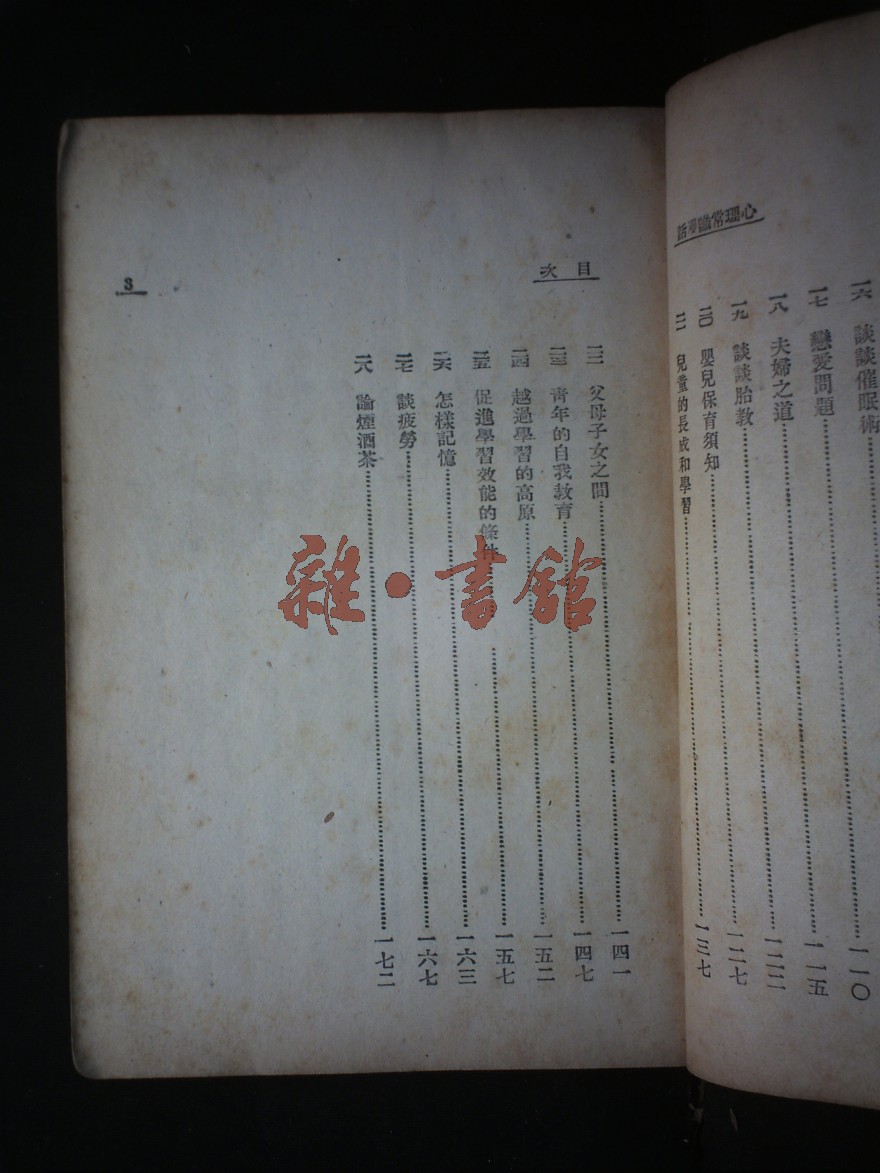 心理常識漫話
一六 談談催眠術 一一〇
一七 戀愛問題 一一五
一八 夫婦之道 一二二
一九 談談胎教 一二七
二〇 嬰兒保育須知
二一 兒童的長成和學習 一三七
目次
3
二二 父母子女之間 一四一
二三 青年的自我教育 一四七
二四 越過學習的高原 一五二
二五 促進學習效能的條件 一五七
二六 怎樣記憶 一六三
二七 談疲勞 一六七
二八 論煙酒茶 一七二
雜·書館